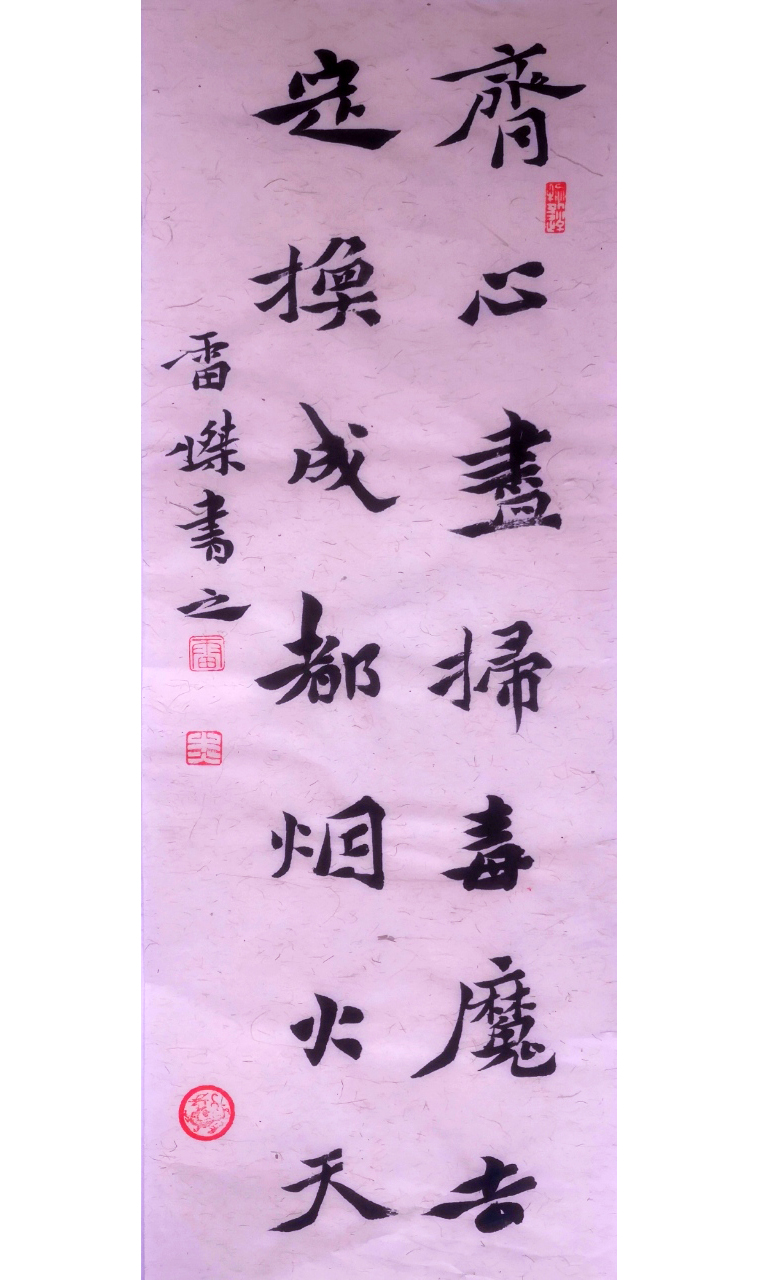 齊心盡掃毒魔去
定換成都烟火天
雷傑書之